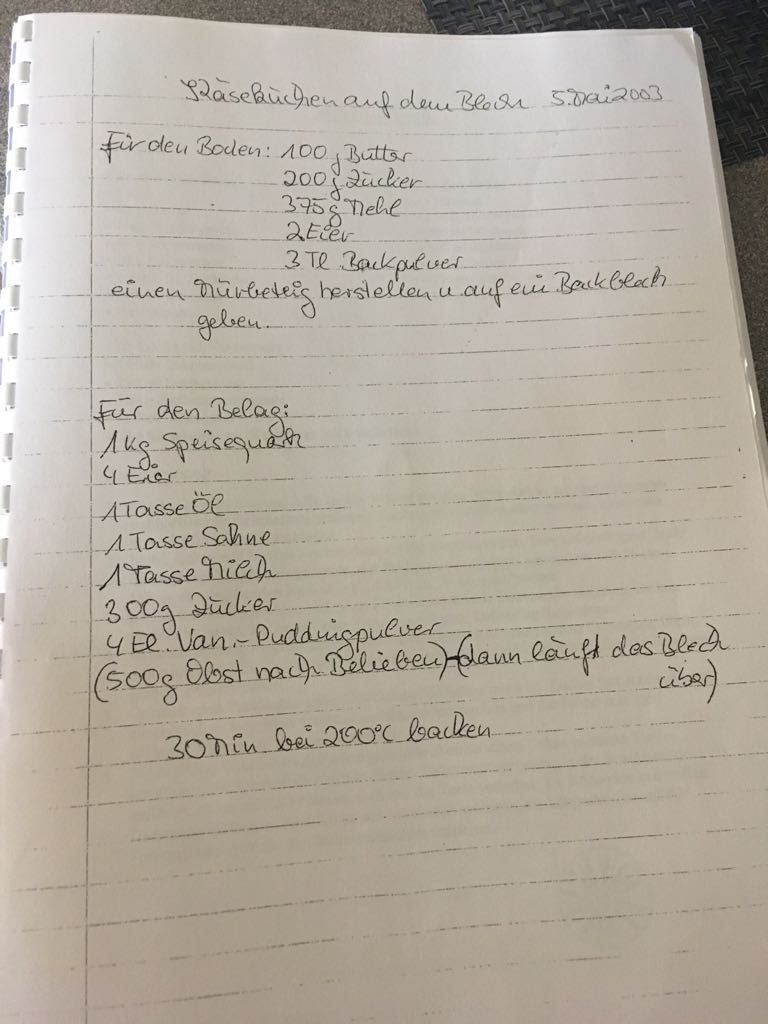 Käsekuchen auf dem Blech 5. Mai 2003
Für den Boden: 100 g Butter
200 g Zucker
375 g Mehl
2 Eier
3 Tl Backpulver
einen Mürbeteig herstellen u auf ein Backblech
geben.
Für den Belag:
1 kg Speisequark
4 Eier
1 Tasse Öl
1 Tasse Sahne
1 Tasse Milch
300g Zucker
4 El. Van.-Puddingpulver
(500g Obst nach Belieben)-(dann läuft das Blech
über)
30 Min bei 200°C backen